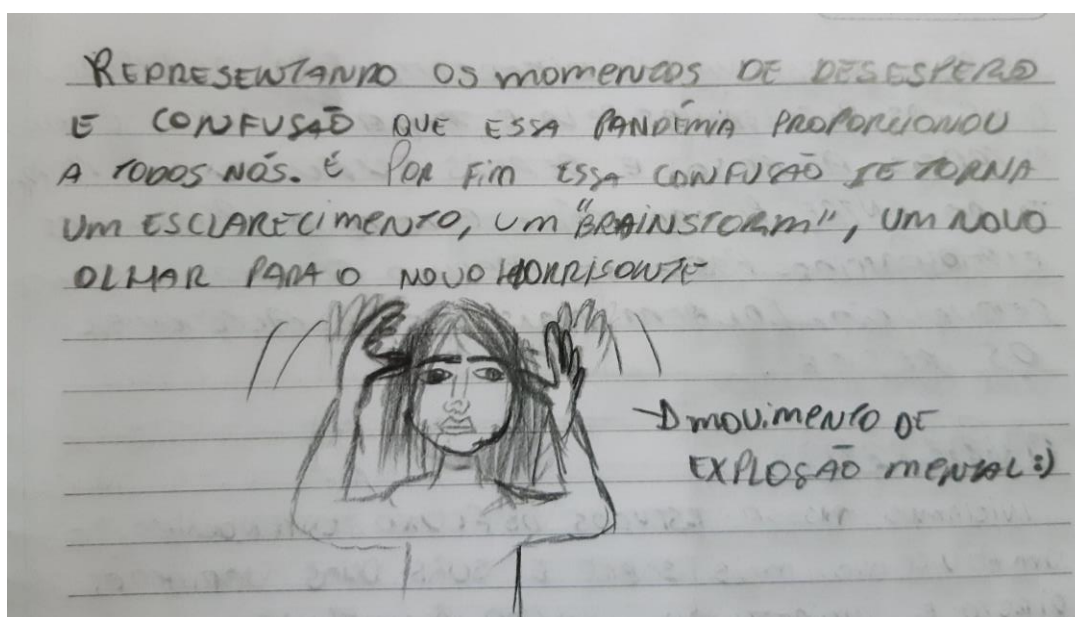 REPRESENTANDO OS MOMENTOS DE DESESPERO
E CONFUSÃO QUE ESSA PANDÊMIA PROPORCIONOU
A TODOS NÓS. É POR FIM ESSA CONFUSÃO SE TORNA
UM ESCLARECIMENTO, UM "BRAINSTORM", UM NOVO
OLHAR PARA O NOVO HORRISONTE
MOVIMENTO DE
EXPLOSÃO MENTAL :)